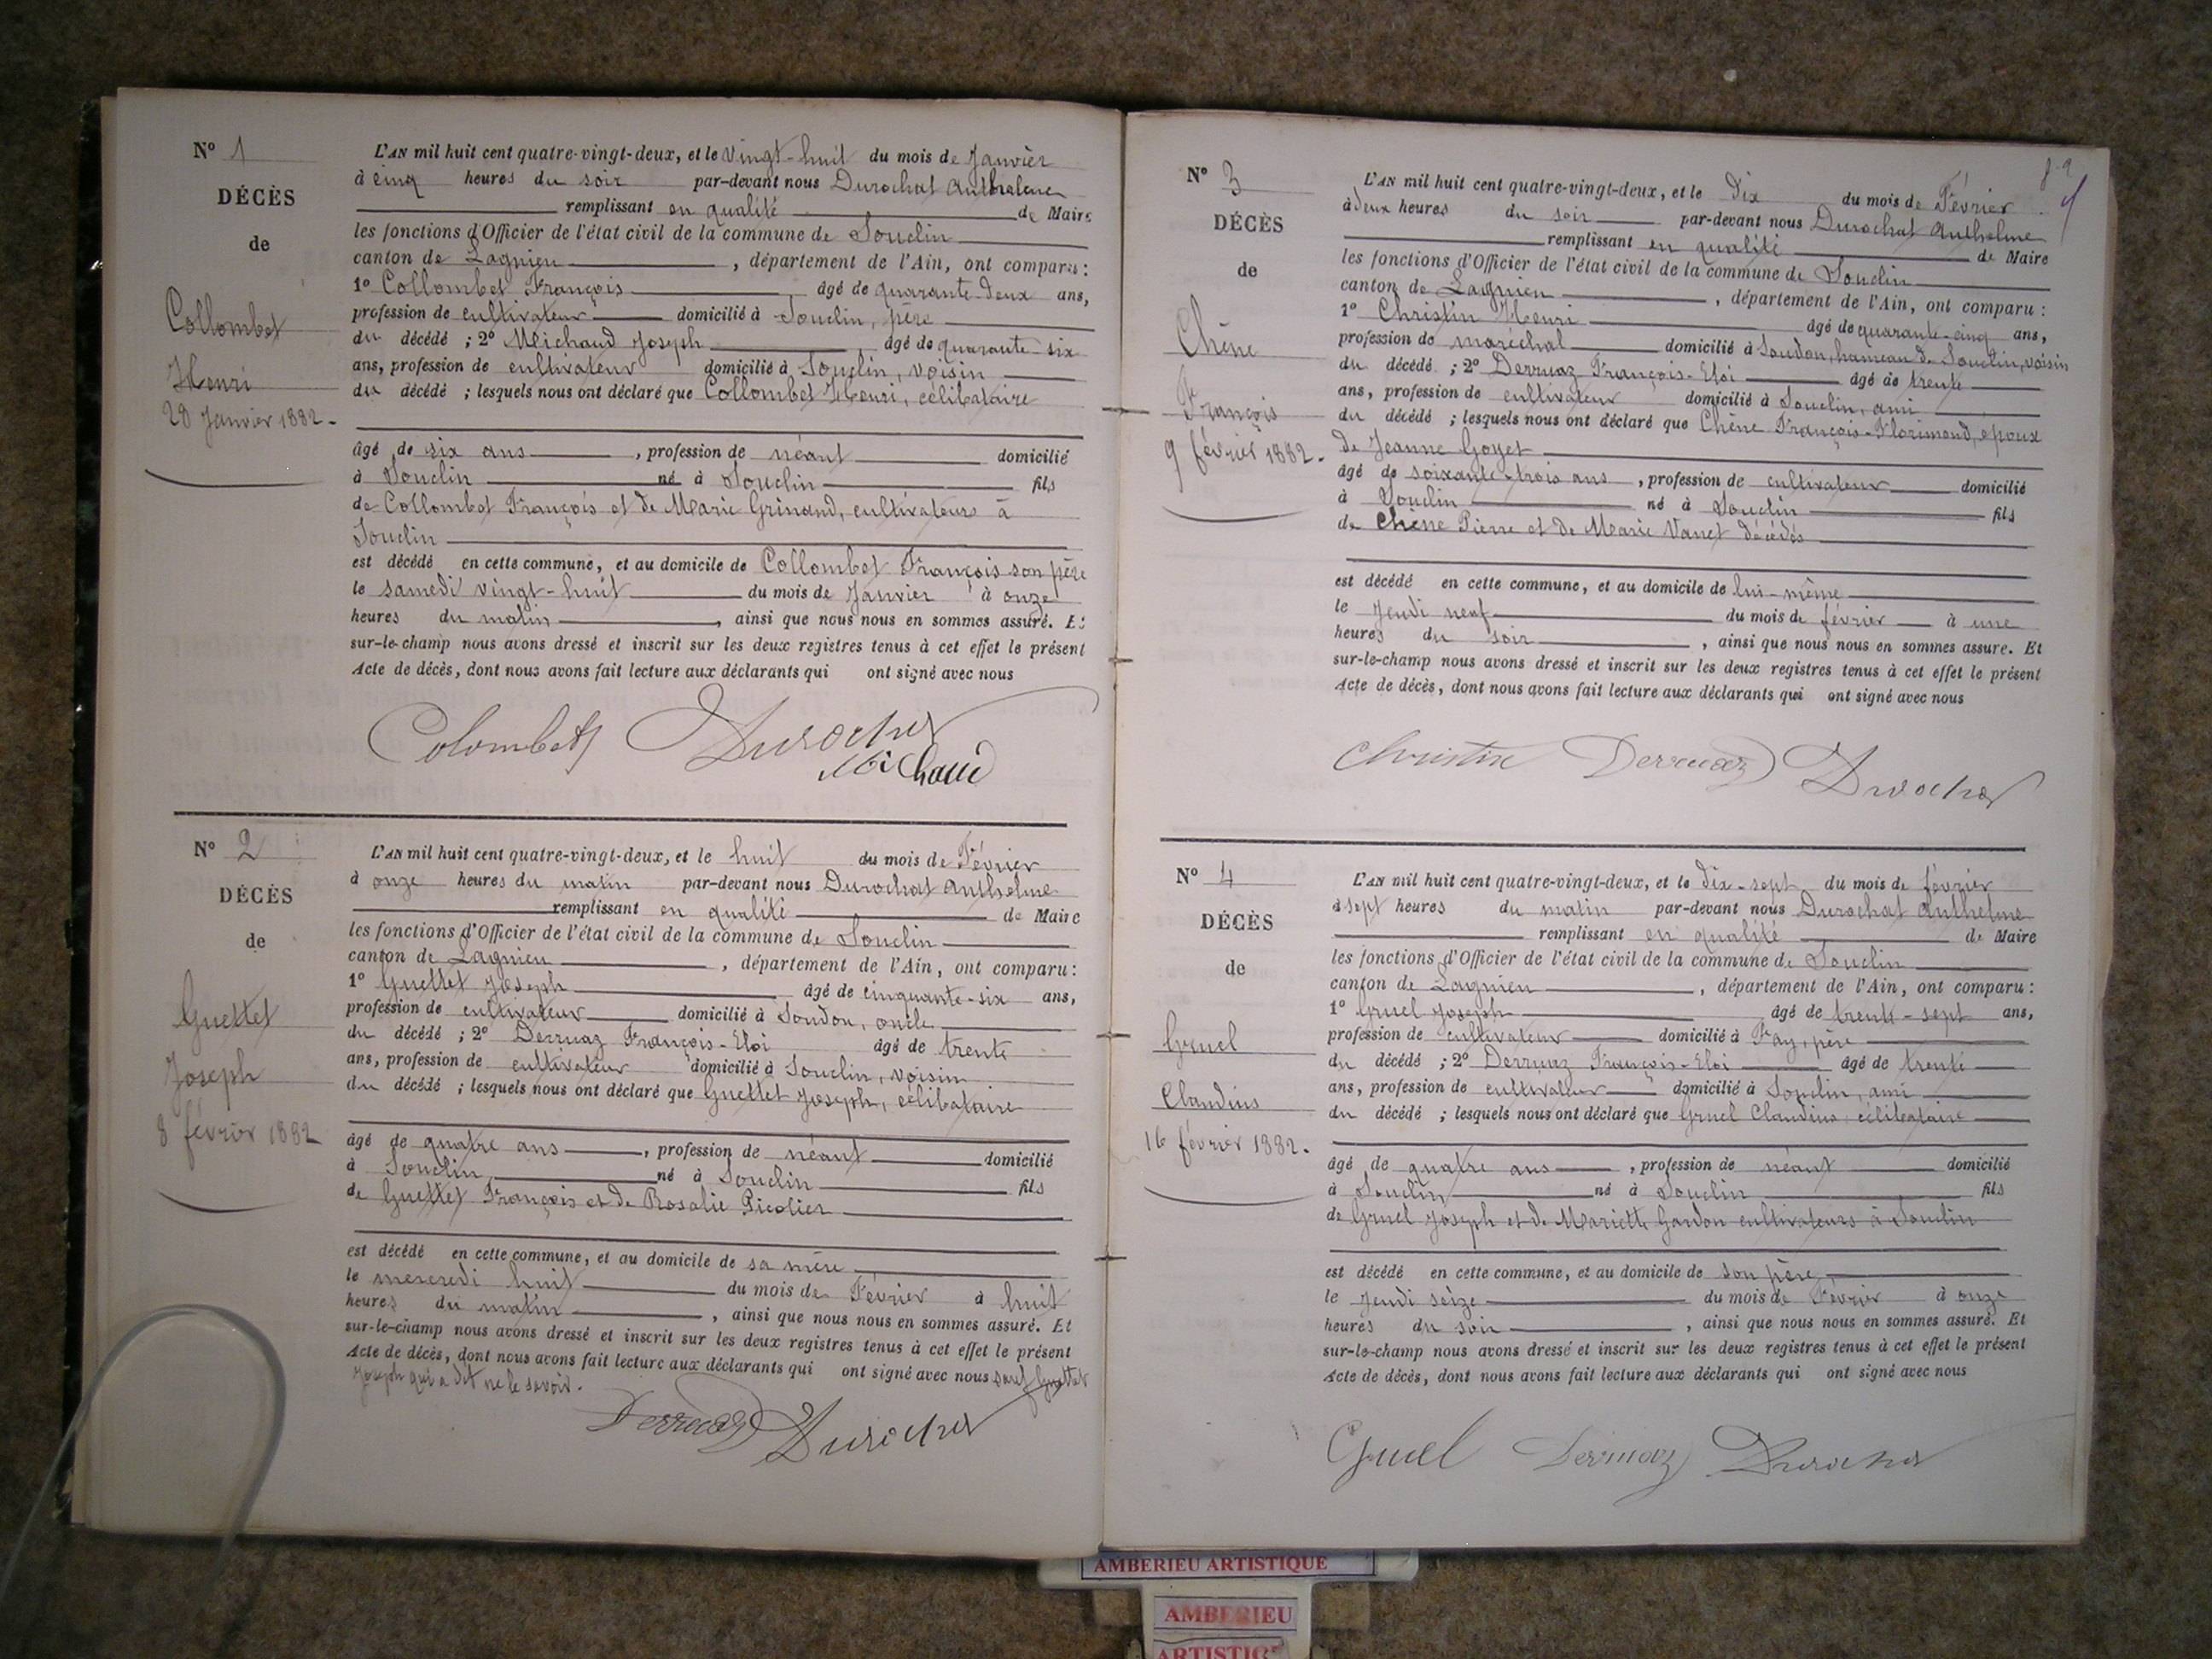 N° 1
DÉCÈS
de
Collombet
Henri
28 Janvier 1882.
L'AN mil huit cent quatre-vingt-deux, et le vingt-huit du mois de Janvier
à cinq heures du soir par-devant nous Durochat Anthelme
remplissant en qualité de Maire
les fonctions d'Officier de l'état civil de la commune de Souclin
canton de Lagnieu, département de l'Ain, ont comparu :
1° Collombet François âgé de quarante-deux ans,
profession de cultivateur domicilié à Souclin, père
du décédé ; 2° Michaud Joseph âgé de quarante-six
ans, profession de cultivateur domicilié à Souclin, voisin
du décédé ; lesquels nous ont déclaré que Collombet Henri, célibataire
âgé de six ans, profession de néant domicilié
à Souclin né à Souclin fils
de Collombet François et de Marie Grinand, cultivateurs à
Souclin
est décédé en cette commune, et au domicile de Collombet François son père
le samedi vingt-huit du mois de Janvier à onze
heures du matin, ainsi que nous nous en sommes assuré. Et
sur-le-champ nous avons dressé et inscrit sur les deux registres tenus à cet effet le présent
Acte de décès, dont nous avons fait lecture aux déclarants qui ont signé avec nous
Colombet Durochat
Michaud
N° 2
DÉCÈS
de
Guettet
Joseph
8 février 1882
L'AN mil huit cent quatre-vingt-deux, et le huit du mois de Février
à onze heures du matin par-devant nous Durochat Anthelme
remplissant en qualité de Maire
les fonctions d'Officier de l'état civil de la commune de Souclin
canton de Lagnieu, département de l'Ain, ont comparu :
1° Guettet Joseph âgé de cinquante-six ans,
profession de cultivateur domicilié à Soudon, oncle
du décédé ; 2° Derruaz François-Eloi âgé de trente
ans, profession de cultivateur domicilié à Souclin, voisin
du décédé ; lesquels nous ont déclaré que Guettet Joseph, célibataire
âgé de quatre ans, profession de néant domicilié
à Souclin, né à Souclin fils
de Guettet François et de Rosalie Picolier
est décédé en cette commune, et au domicile de sa mère
le mercredi huit du mois de Février à huit
heures du matin, ainsi que nous nous en sommes assuré. Et
sur-le-champ nous avons dressé et inscrit sur les deux registres tenus à cet effet le présent
Acte de décès, dont nous avons fait lecture aux déclarants qui ont signé avec nous sauf Guettet
Joseph qui a dit ne le savoir.
Derruaz Durochat
N° 3
DÉCÈS
de
Chêne
François
9 février 1882.
L'AN mil huit cent quatre-vingt-deux, et le Dix du mois de Février
à deux heures du soir par-devant nous Durochat Anthelme
remplissant en qualité de Maire
les fonctions d'Officier de l'état civil de la commune de Souclin
canton de Lagnieu, département de l'Ain, ont comparu :
1° Christin Henri âgé de quarante-cinq ans,
profession de maréchal domicilié à Soudon, hameau de Souclin, voisin
du décédé ; 2° Derruaz François-Eloi âgé de trente
ans, profession de cultivateur domicilié à Souclin, ami
du décédé ; lesquels nous ont déclaré que Chêne François-Florimond, époux
de Jeanne Goyet
âgé de soixante-trois ans, profession de cultivateur domicilié
à Souclin né à Souclin fils
de Chêne Pierre et de Marie Vanet décédés
est décédé en cette commune, et au domicile de lui-même
le Jeudi neuf du mois de février à une
heures du soir, ainsi que nous nous en sommes assuré. Et
sur-le-champ nous avons dressé et inscrit sur les deux registres tenus à cet effet le présent
Acte de décès, dont nous avons fait lecture aux déclarants qui ont signé avec nous
Christin Derruaz Durochat
N° 4
DÉCÈS
de
Gruel
Claudius
16 février 1882.
L'AN mil huit cent quatre-vingt-deux, et le dix-sept du mois de février
à sept heures du matin par-devant nous Durochat Anthelme
remplissant en qualité de Maire
les fonctions d'Officier de l'état civil de la commune de Souclin
canton de Lagnieu, département de l'Ain, ont comparu :
1° Gruel Joseph âgé de trente-sept ans,
profession de cultivateur domicilié à Fay, père
du décédé ; 2° Derruaz François-Eloi âgé de trente
ans, profession de cultivateur domicilié à Souclin, ami
du décédé ; lesquels nous ont déclaré que Gruel Claudius célibataire
âgé de quatre ans, profession de néant domicilié
à Souclin, né à Souclin fils
de Gruel Joseph et de Mariette Gardon cultivateurs à Souclin
est décédé en cette commune, et au domicile de son père
le Jeudi seize du mois de Février à onze
heures du soir, ainsi que nous nous en sommes assuré. Et
sur-le-champ nous avons dressé et inscrit sur les deux registres tenus à cet effet le présent
Acte de décès, dont nous avons fait lecture aux déclarants qui ont signé avec nous
Gruel Derruaz Durochat
AMBERIEU ARTISTIQUE
AMBERIEU